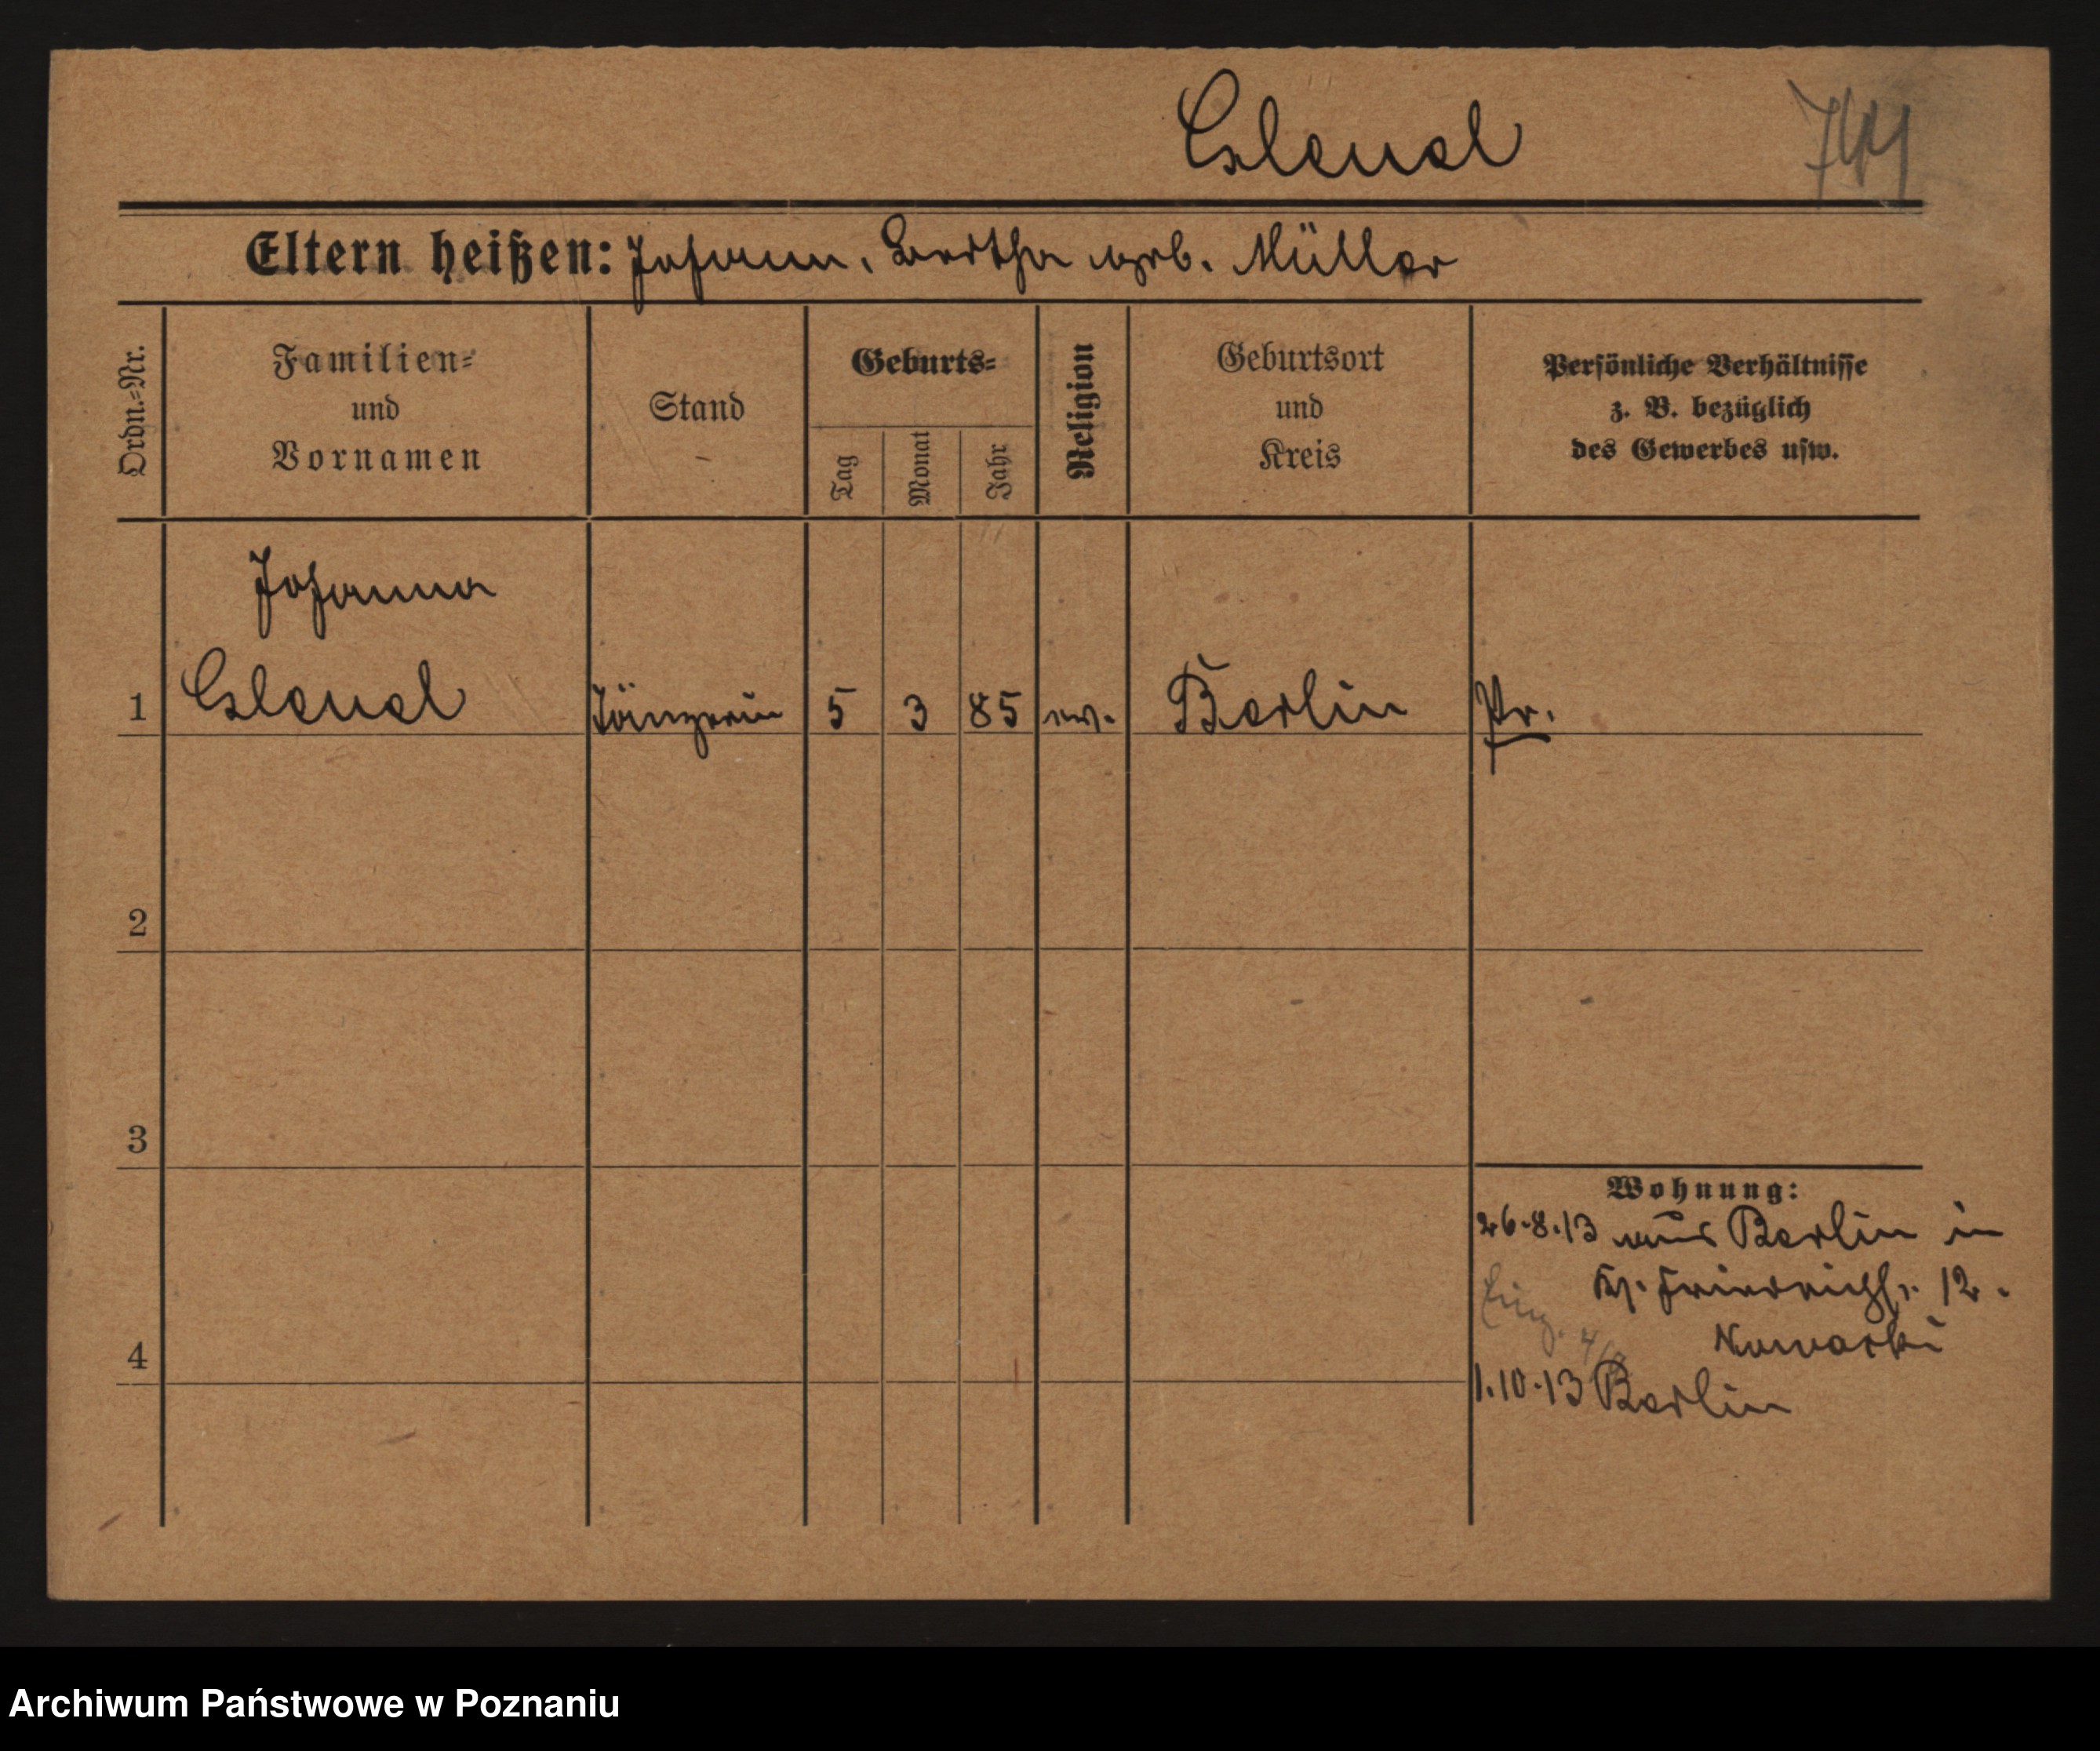 Cslcucl 744
Eltern heißen: Johann, Bertha geb. Müller
Ordn.-Nr.
Familien-
und
Vornamen
Stand
Geburts-
Tag
Monat
Jahr
Religion
Geburtsort
und
Kreis
Persönliche Verhältnisse
z. B. bezüglich
des Gewerbes usw.
Johanna
1 Sängerin 5 3 85 ev. Berlin Pr.
2
3
Wohnung:
26.8.13 aus Berlin in
Kl. Friedrichstr. 12.
Nowacki
4
1.10.13 Berlin
Archiwum Państwowe w Poznaniu